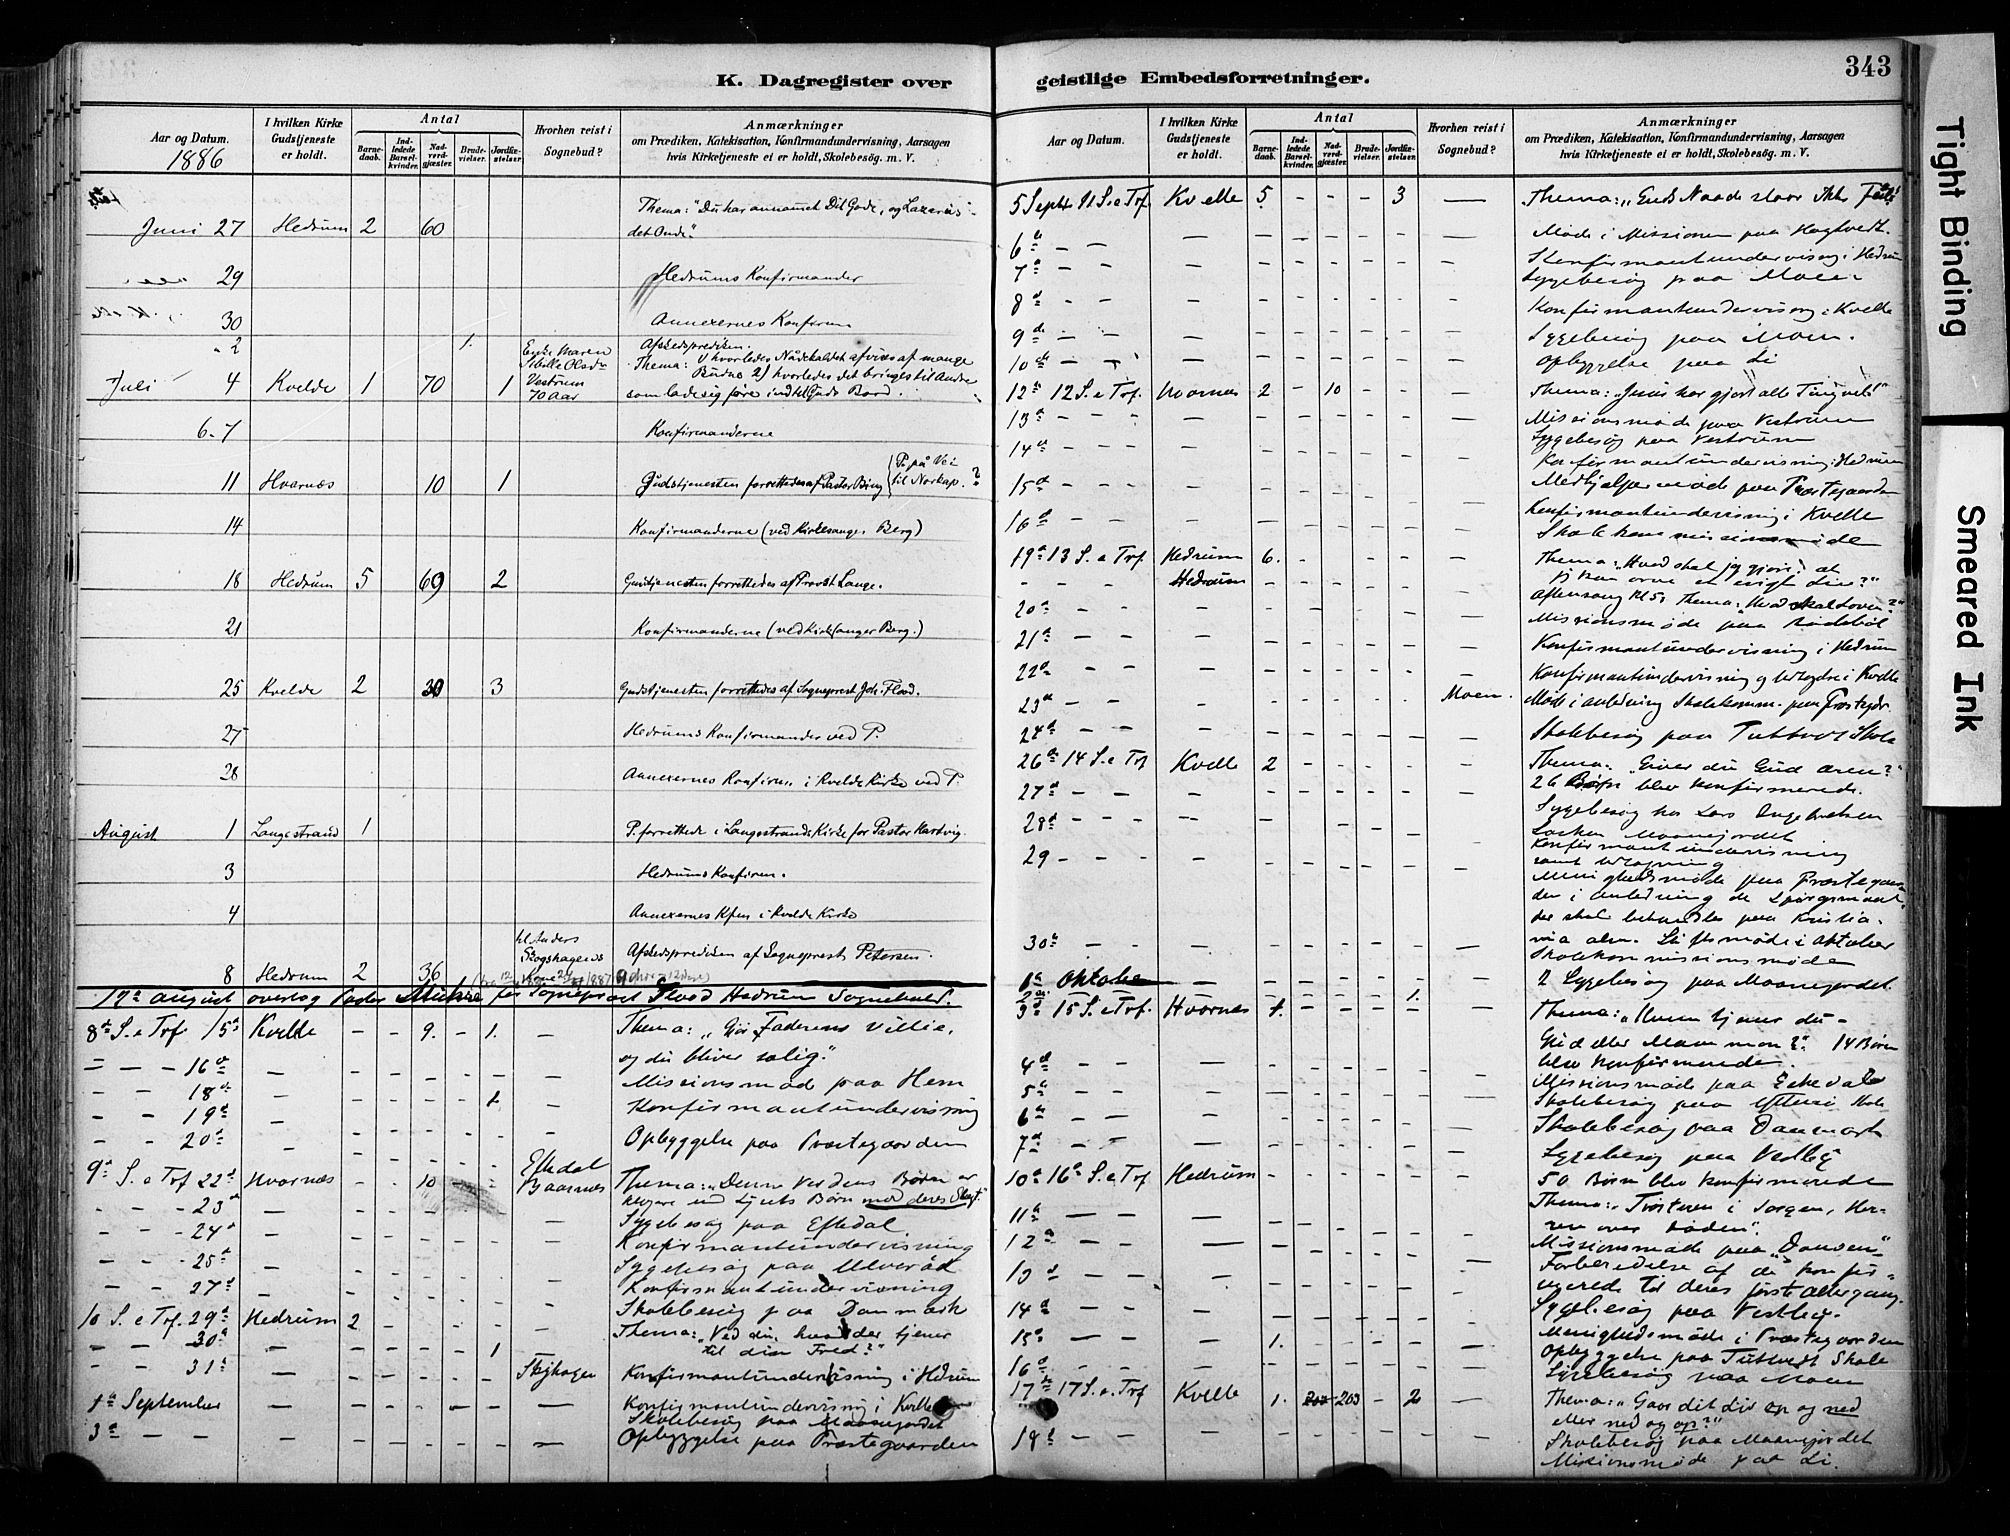 343
K. Dagregister over
geistlige Embedsforretninger.
Tight Binding
Smeared Ink
Aar og Datum.
1886
I hvilken Kirke Gudstjeneste er holdt.
Antal
Barnedaab.
Indledede Barselkvinder.
Nadverdgjæster.
Brudevielser.
Jordfæstelser.
Hvorhen reist i Sognebud?
Anmærkninger
om Prædiken, Katekisation, Konfirmandundervisning, Aarsagen
hvis Kirketjeneste ei er holdt, Skolebesög. m. V.
Thema: "Du har annammet Dit Gode, og Lazarus
Juni 27 Hedrum 2 60 det Onde".
29 Hedrums Konfirmander
30 Annexernes Konfirm
2 1. Afskedsprediken.
Enke Maren
Sibille Olsdr
Vestrum
70 Aar
Thema: 1/ hvorledes Nådekaldet afvises af mange
Budne 2/ hvorledes det bringes til Andre
Juli 4 Kvelde 1 70 1 som lade sig føre ind til Guds Bord.
6-7 Konfirmanderne
11 Hvarnæs 10 1 Gudstjenesten forrettedes af Pastor Bing { P. på Vei til Norkap. ?
14 Konfirmanderne (ved Kirkesanger Berg)
18 Hedrum 5 69 2 Gudstjenesten forrettedes af Provst Lange.
21 Konfirmanderne (ved Kirkesanger Berg.)
25 Kvelde 2 30 3 Gudstjenesten forrettedes af Sogneprest Joh. Flood.
27 Hedrums Konfirmander ved P.
28 Annexernes Konfirm. i Kvelde Kirke ved P.
August 1 Langestrand 1 P. forrettede i Langestrands Kirke for Pastor Hartvig.
3 Hedrums Konfirm.
4 Annexernes Kfm i Kvelde Kirke
Anders
Skogshagens
Kone
8 Hedrum 2 36 Afskedsprediken af Sogneprest Petersen.
12te august overtog Pastor for Sogneprest Flood Hedrum Sognekald.
8de S. e Trf 15de Kvelle - - 9. - 1. - Thema: "Gjør Faderens Villie,
og du bliver salig."
- - - 16de - Missionsmøde paa Hem
- - 18de - 1. - Konfirmantundervisning
- - 19de -
- - 20de - Opbyggelse paa Præstegaarden
9de S. e Trf 22de Hvarnæs - - 10 - - Eftedal
Bjaarnæs Thema: "Denne Verdens Børn er
klogere end Lysets Børn mod deres Slægt"
- - - 23de - Sygebesøg paa Eftedal
- - - 24de - Konfirmantundervisning
- - - 25de - Sygebesøg paa Ulverød
- - 27de - Konfirmantundervisning
Skolebesøg paa Danmark
10 S. e Trf. 29de Hedrum 2 - Thema: "Ved du, hvad der tjener
til din Fred?"
- - 30de - 1
- - 31te - Konfirmantundervisning i Hedrum
1ste September - Konfirmantundervisning i Kvelle
Skolebesøg paa Maanejordet
3de - - - Opbyggelse paa Præstegaarden
Aar og Datum.
I hvilken Kirke Gudstjeneste er holdt.
Antal
Barnedaab.
Indledede Barselkvinder.
Nadverdgjæster.
Brudevielser.
Jordfæstelser.
Hvorhen reist i Sognebud?
Anmærkninger
om Prædiken, Katekisation, Konfirmandundervisning, Aarsagen
hvis Kirketjeneste ei er holdt, Skolebesög. m. V.
5 Septbr 11 S. e Trf. Kvelle 5 - - - 3 - Thema: "Guds Naade staar Ikke Feil!"
6te - - - Møde i Missionen paa Hagtvedt.
7de - - - Konfirmantundervisning i Hedrum
Sygebesøg paa Moen
8de - - - Konfirmantundervisning i Kvelle
9de - - - Sygebesøg paa Moen.
10de - - - Opbyggelse paa Li
12te 12 S. e Trf. Hvarnæs 2 - 10 - - Thema: "Jesus har gjort alle Ting vel!"
13de - - - Missionsmøde paa Vestrum
14de - - - Sygebesøg paa Vestrum
Konfirmantundervisning i Hedrum
15de - - - Medhjælpermøde paa Præstegaarden
16de - - - Konfirmantundervisning i Kvelle
Skolekommissionsmøde
19de 13 S. e Trf. Hedrum 6. Thema: "Hvad skal jeg gjøre, at
jeg kan arve et evigt Liv?"
- - - Hedrum Aftensang Kl 5. Thema: "Hvad skal Loven?"
20de - - - Missionsmøde paa Rødebøl
21de - - - Konfirmantundervisning i Hedrum
22de - - - Konfirmantundervisning i Kvelle
23de - - - Moen. Møde i anledning Skolekomm. paa Præstegdr.
24de - - - Skolebesøg paa Tuttvet Skole
26de 14 S. e Trf Kvelle 2 Thema: "Giver du Gud æren?"
26 Børn blev konfirmerede.
27de - - - Sygebesøg hos Lars Ingebretsen
Maanejordet
28de - - - Konfirmantundervisning
29 - - - Menighedsmøde paa Præstegaar-
den i anledning de Spørgsmaal,
der skal behandles paa Kristia-
nia alm. Stiftsmøde i Oktober
30te - - - Skolekommissionsmøde
1ste Oktober - 2 Sygebesøg paa Maanejordet.
2den - 1.
3de 15 S. e Trf. Hvarnæs 1. Thema: "Hvem tjener du -
Gud eller Mammon?" 14 Børn
blev konfirmerede.
4de - - - Missionsmøde paa Eekedal
5te - - - Skolebesøg paa Skole
6te - - - Skolebesøg paa Danmark
7de - - - Sygebesøg paa Vestby
10de 16de S. e Trf Hedrum 50 Børn blev konfirmerede
Thema: "Trøsteren i Sorgen, Her-
ren over Døden".
11te - - - Missionsmøde paa "Dansen"
12te - - - Forberedelse af de konfir-
merede til deres første altergang.
13de - - -
14de - - - Sygebesøg paa Vestby.
15de - - - 1. Menighedsmøde i Præstegaarden
Opbyggelse paa Tuttvedt Skole
16de - - - Sygebesøg paa Moen
17de 17 S. e Trf Kvelle 1. 203 - 2 - Thema: "Gaar dit Liv op og ned
eller ned og op?"
18de - - - Skolebesøg paa Maanejordet
Missionsmøde paa Li.